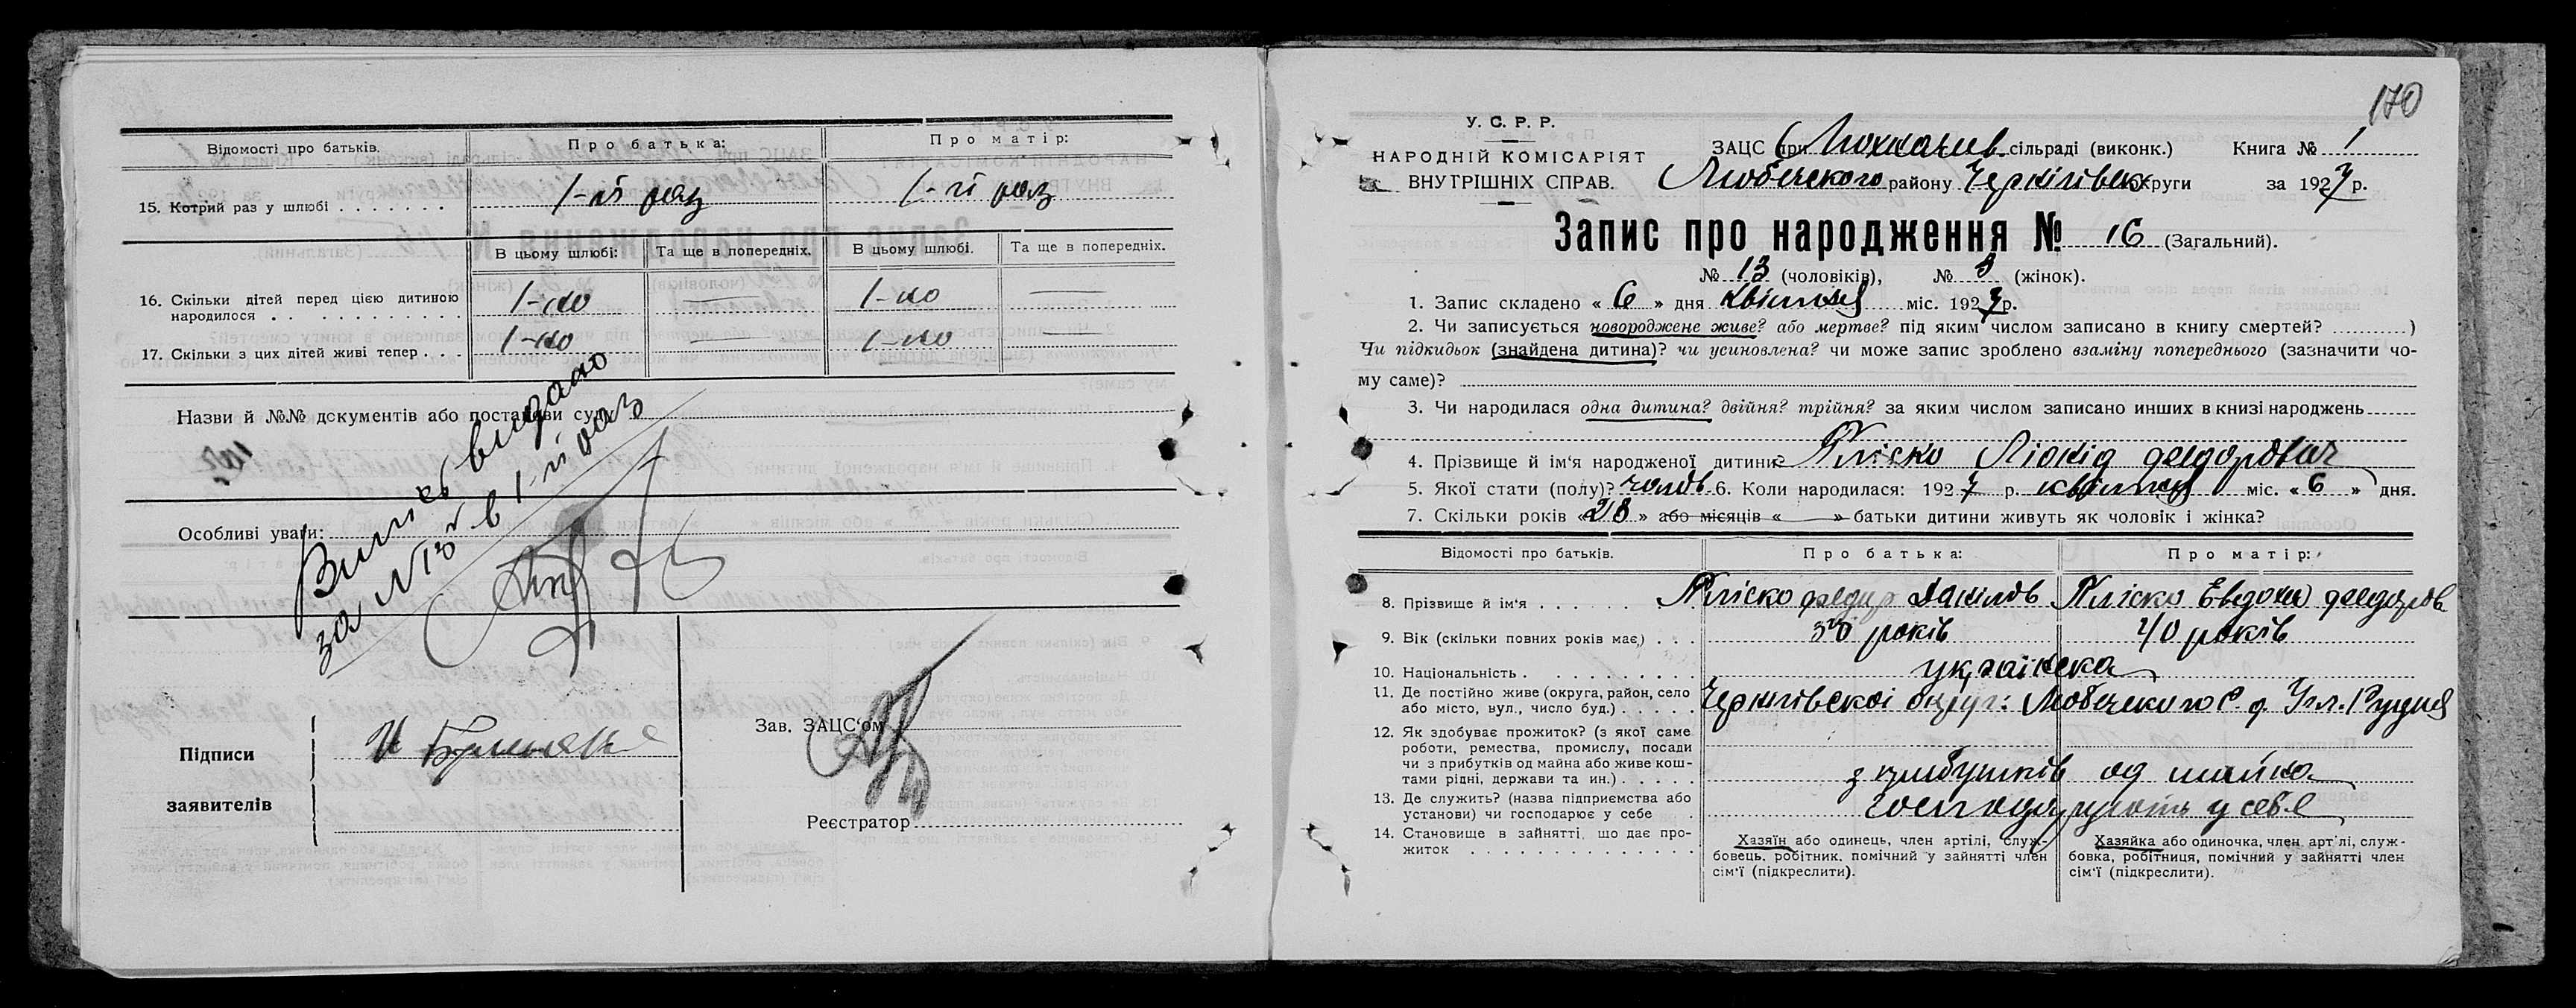 Відомості про батьків.
Про батька:
Про матір:
15. Котрий раз у шлюбі
1-й раз
1-й раз
В цьому шлюбі:
Та ще в попередніх.
В цьому шлюбі.
Та ще в попередніх.
16. Скільки дітей перед цією дитиною
народилося
1-но
1-но
17. Скільки з цих дітей живі тепер
1-но
1-но
Назви й №№ документів або постанови суду
Особливі уваги:
видано
за №13 в 1-й раз
Підписи
заявителів
Зав. ЗАЦС'ом
Реєстратор
170
У. С. Р. Р.
НАРОДНІЙ КОМІСАРІЯТ
ВНУТРІШНІХ СПРАВ.
ЗАЦС при сільраді (виконк.) Книга № 1
Любечского району Чернігівськ округи за 1927 р.
Запис про народження № 16 (Загальний).
№ 13 (чоловіків), № 3 (жінок).
1. Запис складено « 6 » дня квітня міс. 1927 р.
2. Чи записується новороджене живе? або мертве? під яким числом записано в книгу смертей? )
Чи підкидьок (знайдена дитина)? чи усиновлена? чи може запис зроблено взаміну попереднього (зазначити чо-
му саме)?
3. Чи народилася одна дитина? двійня? трійня? за яким числом записано инших в книзі народжень
4. Прізвище й ім'я народженої дитини? КліскоЛіонід Федорович
5. Якої стати (полу)? чолов. 6. Коли народилася: 1927 р. квітня міс. « 6 » дня.
7. Скільки років « » або місяців « » батьки дитини живуть як чоловік і жінка?
Відомості про батьків.
Про батька:
Про матір:
8. Прізвище й ім'я
Кліско Федир Данілов
Кліско Евдокия Федоров
9. Вік (скільки повних років має)
років
40 років
10. Національність
українска
11. Де постійно живе (округа, район, село
або місто, вул., число буд.)
Чернігівскоі округ: Любечского Р. Рудня
12. Як здобуває прожиток? (з якої саме
роботи, ремества, промислу, посади
чи з прибутків од майна або живе кош-
тами рідні, держави та ин.)
з прибутків од майна
13. Де служить? (назва підприємства або
установи) чи господарює у себе
господарують у себе
14. Становище в зайнятті, що дає про-
житок
Хазяїн або одинець, член артілі, служ-
бовець, робітник, помічний у зайнятті член
сім'ї (підкреслити).
Хазяйка або одиночка, член артілі, служ-
бовка, робітниця, помічний у зайнятті член
сім'ї (підкреслити).